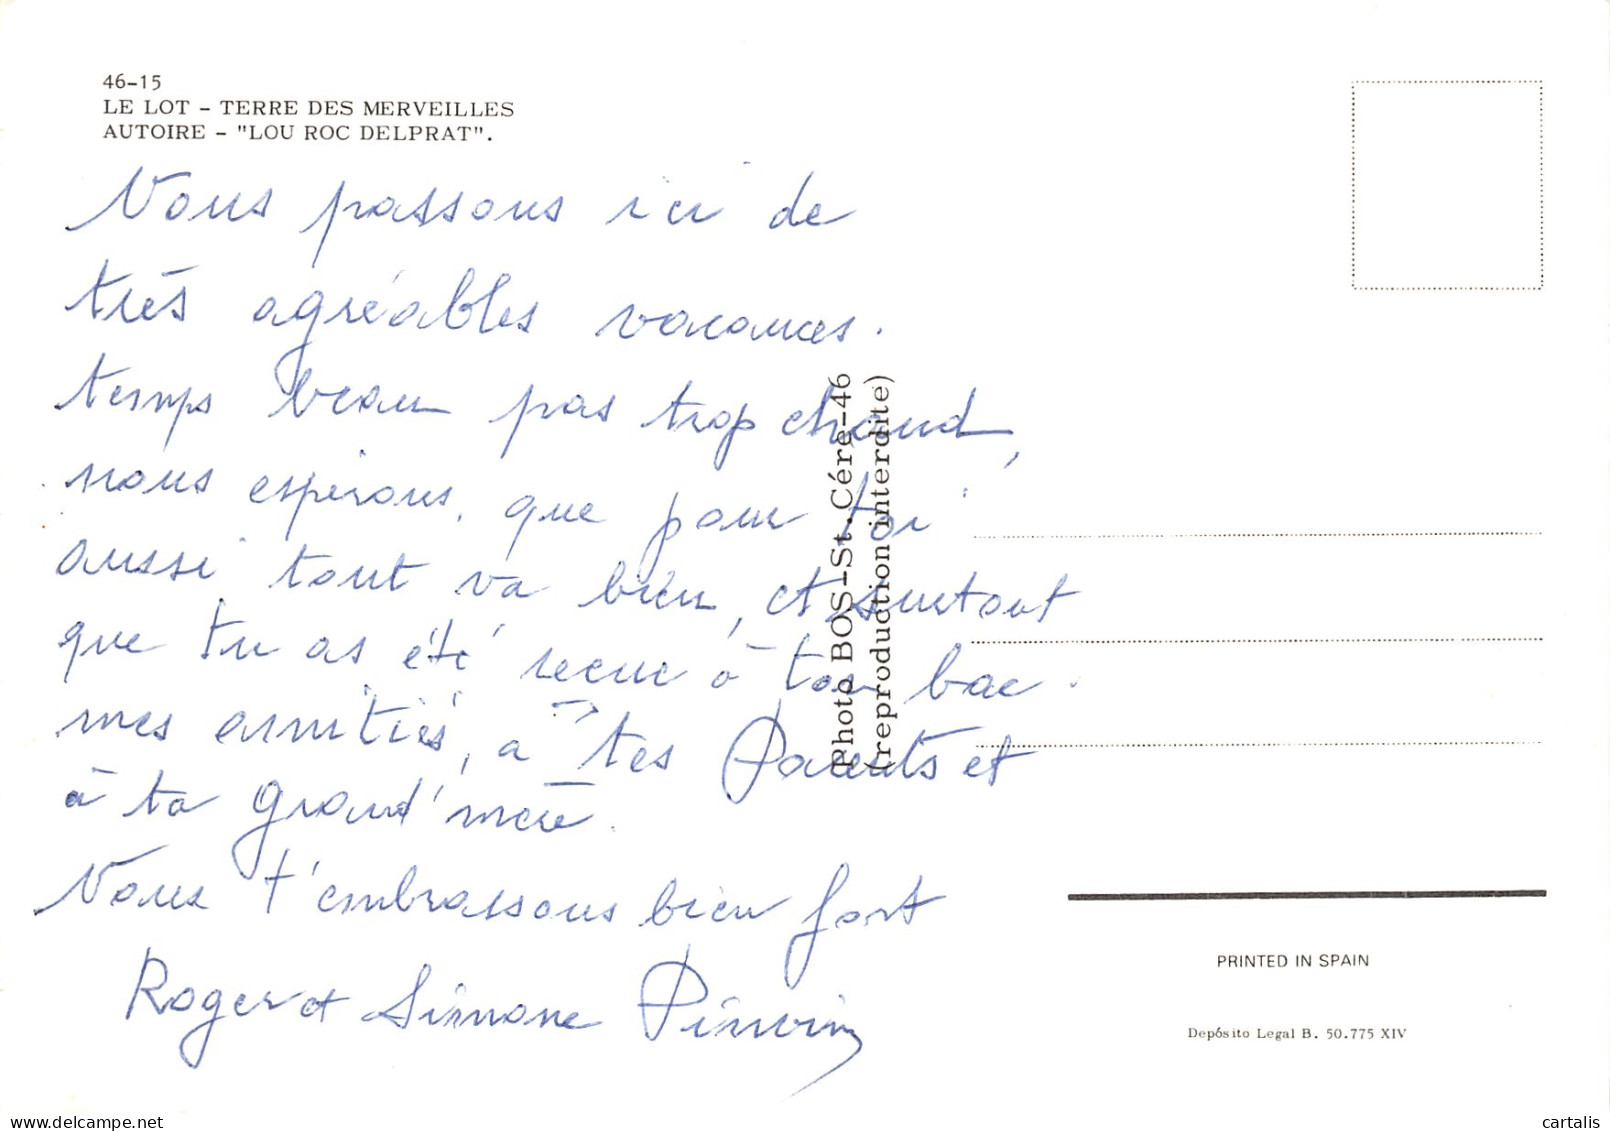 46-15
LE LOT - TERRE DES MERVEILLES
AUTOIRE - "LOU ROC DELPRAT".
Nous passons ici de
très agréables vacances.
temps beau pas trop chaud,
nous esperons, que pour toi
aussi tout va bien, et surtout
que tu as été recue à ton bac.
mes amitiés, à tes Parents et
à ta grand'mère.
Nous t'embrassons bien fort
Roger et Simone
Photo BOS-St. Cére-46
(reproduction interdite)
PRINTED IN SPAIN
Depósito Legal B. 50.775 XIV
delcampe.net
cartalis